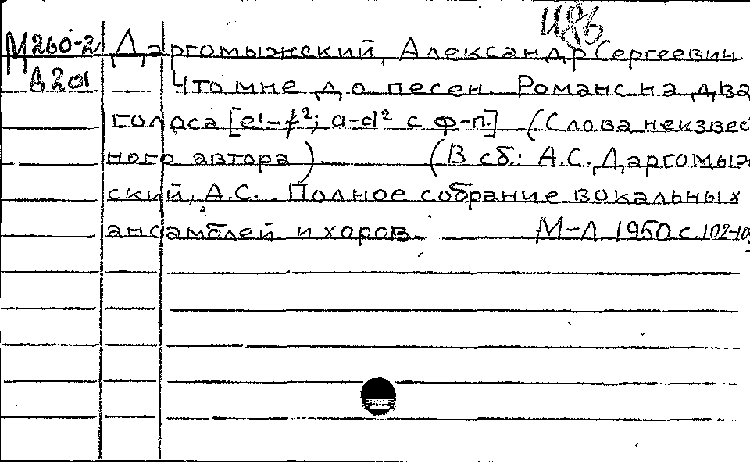 М260-2 Даргомыжский, Александр Сергеевич
Д201 Что мне до песен. Романс на два
голоса [e¹-f²; a-d² с ф-п.] (Слова неизвест
ного автора) (В сб.: А.С. Даргомыж
ский, А.С. Полное собрание вокальных
ансамблей и хоров. М-Л 1950 с. 102-10